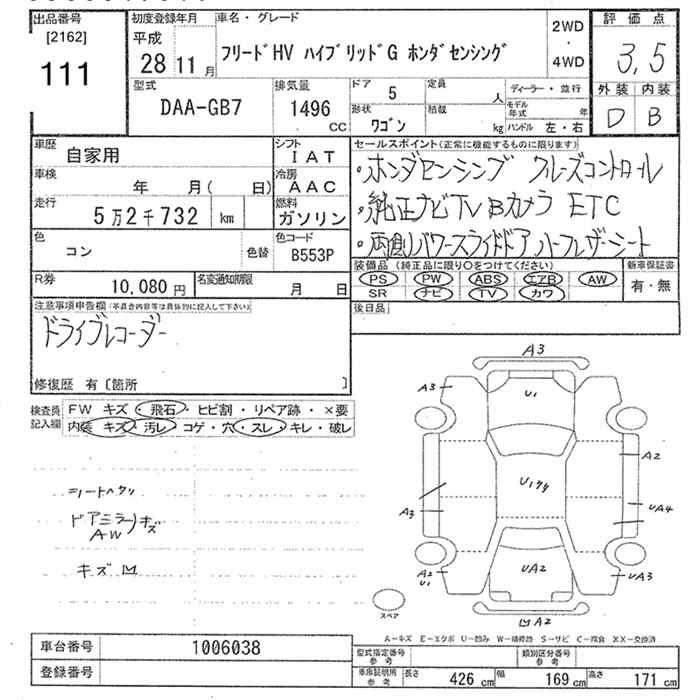 出品番号
[2162]
111
初度登録年月
平成
28 11 月
車名・グレード
フリードHV ハイブリッドG ホンダセンシング
2WD
・
4WD
評価点
3,5
外装 内装
D B
型式
DAA-GB7
排気量
1496
CC
ドア 5
形状 ワゴン
定員 人
積載 kg
ディーラー・並行
モデル年式 年
ハンドル 左・右
車歴
自家用
シフト
IAT
車検
年 月( 日)
冷房
AAC
走行
5万2千732 km
燃料
ガソリン
色
コン
色替
色コード
B553P
R券
10,080円
名変通知期限
月 日
セールスポイント(正常に機能するものに限ります)
・ホンダセンシング クルーズコントロール
・純正ナビTV Bカメラ ETC
・両側パワースライドドア ハーフレザーシート
装備品 (純正品に限り○をつけてください)
PS PW ABS エアB AW
SR ナビ TV カワ
新車保証書
有・無
後日品
注意事項申告欄(不具合内容等は具体的に記入して下さい)
ドライブレコーダー
修復歴 有〔箇所 〕
検査員記入欄
FW キズ・飛石・ヒビ割・リペア跡・×要
内装 キズ・汚レ・コゲ・穴・スレ・キレ・破レ
シートヘタリ
ドアミラーキズ
AW
キズ 凹
A3
A3
U1
A2
Uイタリ
A3
UA4
A2
U1
UA2
UA3
凹A2
スペア
A-キズ E-エクボ U-凹み W-補修跡 S-サビ C-腐食 XX-交換済
車台番号
1006038
登録番号
型式指定番号
参考
類別区分番号
参考
車庫証明用
参考
長さ 426 cm
幅 169 cm
高さ 171 cm